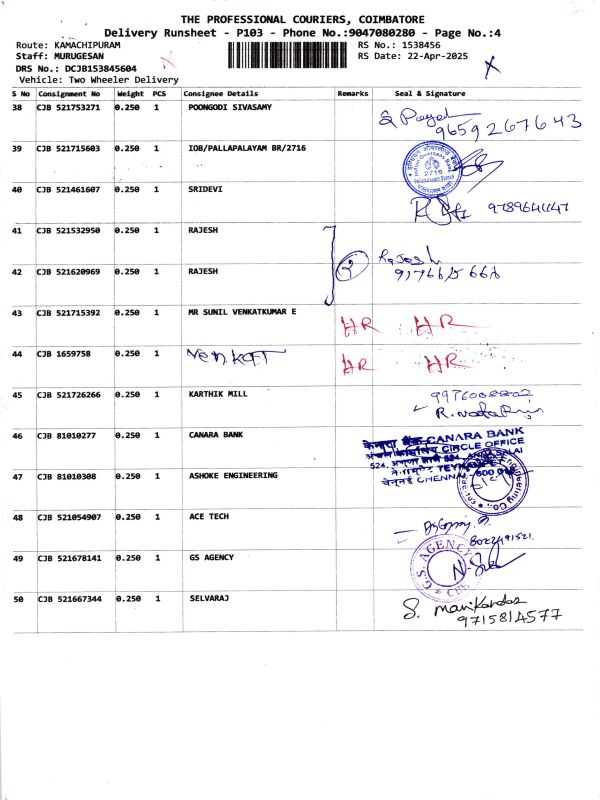 THE PROFESSIONAL COURIERS, COIMBATORE
Delivery Runsheet - P103 - Phone No.:9047080280 - Page No.:4
Route: KAMACHIPURAM RS No.: 1538456
Staff: MURUGESAN RS Date: 22-Apr-2025
DRS No.: DCJB153845604
Vehicle: Two Wheeler Delivery
S No Consignment No Weight PCS Consignee Details Remarks Seal & Signature
38 CJB 521753271 0.250 1 POONGODI SIVASAMY
9659267643
39 CJB 521715603 0.250 1 IOB/PALLAPALAYAM BR/2716
2716
40 CJB 521461607 0.250 1 SRIDEVI
41 CJB 521532950 0.250 1 RAJESH
42 CJB 521620969 0.250 1 RAJESH
2 Rajesh
43 CJB 521715392 0.250 1 MR SUNIL VENKATKUMAR E
HR HR
44 CJB 1659758 0.250 1
HR HR
45 CJB 521726266 0.250 1 KARTHIK MILL
46 CJB 81010277 0.250 1 CANARA BANK
CANARA BANK
CIRCLE OFFICE
47 CJB 81010308 0.250 1 ASHOKE ENGINEERING
48 CJB 521054907 0.250 1 ACE TECH
49 CJB 521678141 0.250 1 GS AGENCY
G.S. AGENCY
50 CJB 521667344 0.250 1 SELVARAJ
S. Manikandan
9715814577